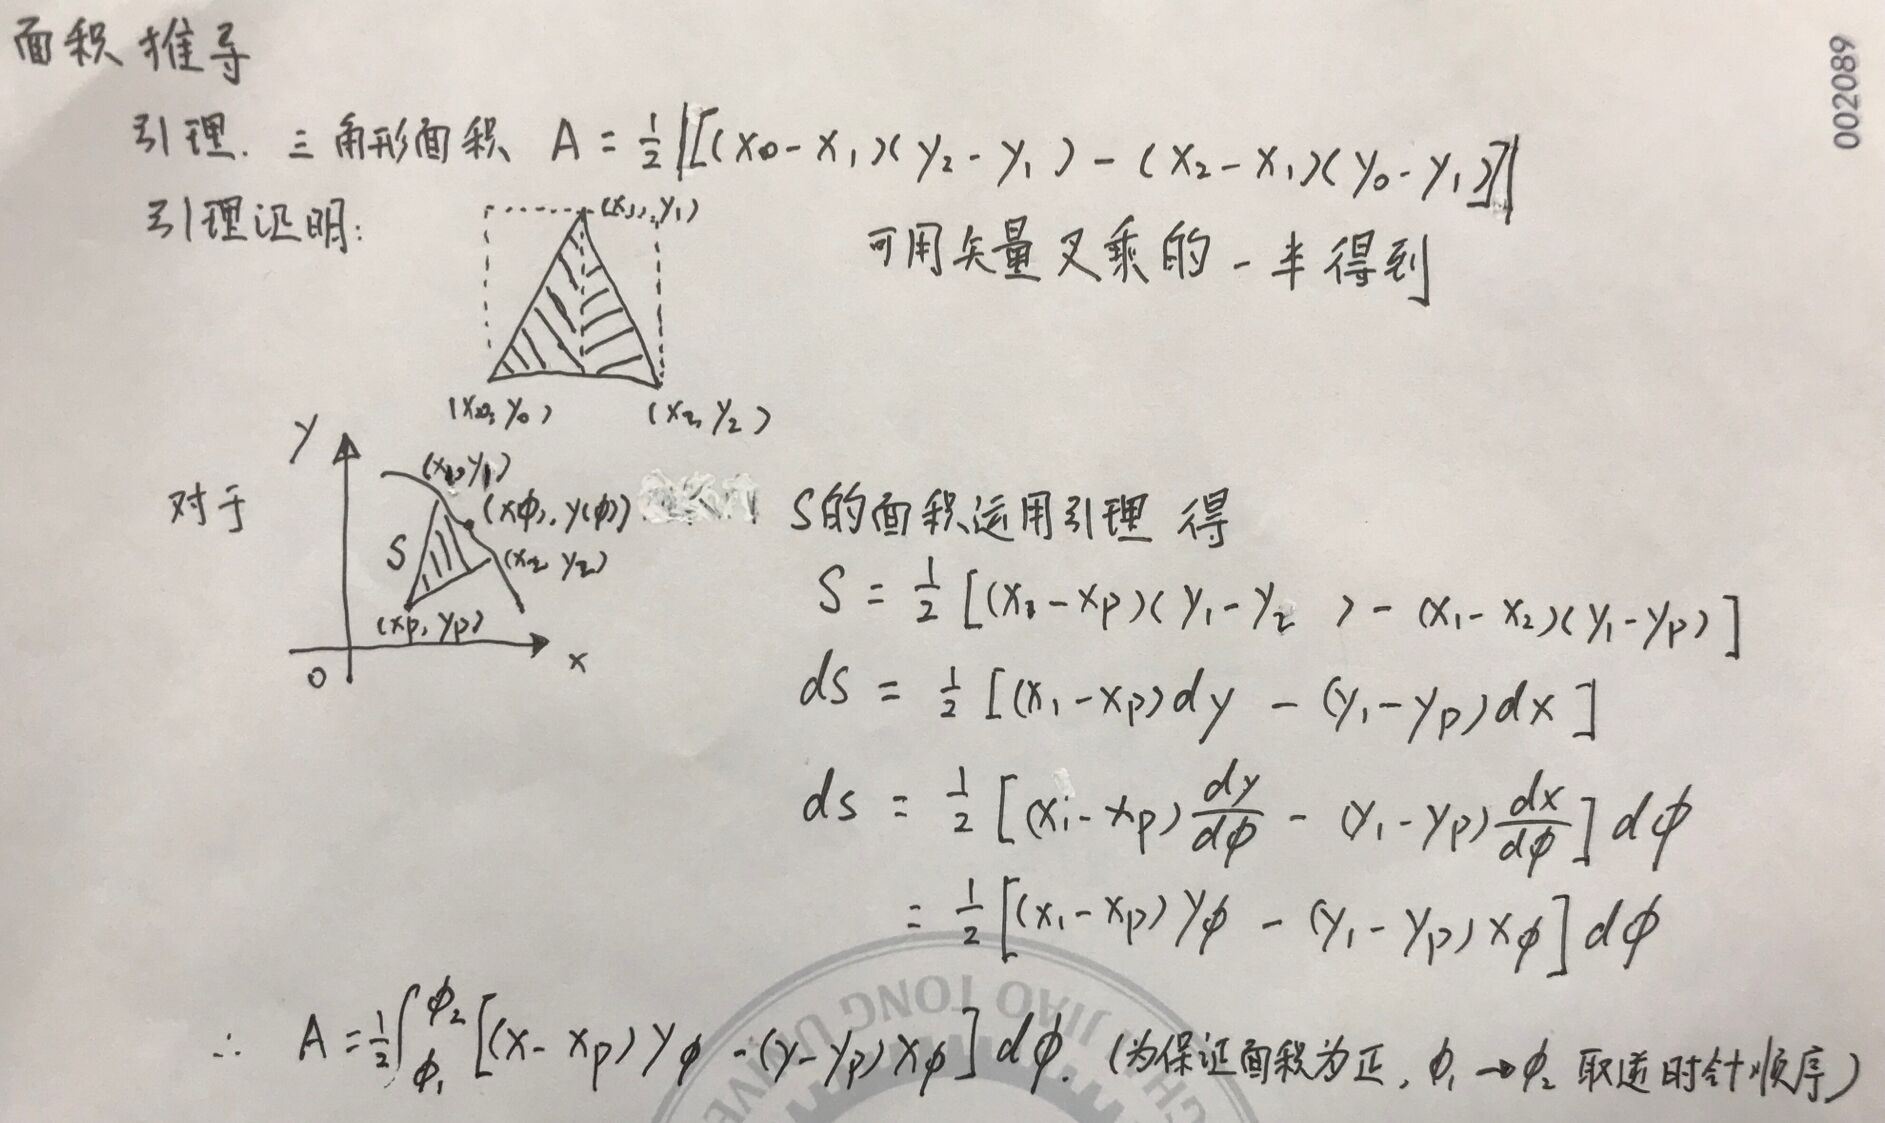 面积推导
002089
引理. 三角形面积 A = 1/2 |[(x₀-x₁)(y₂-y₁) - (x₂-x₁)(y₀-y₁)]|
引理证明:
(x₁, y₁)
可用矢量叉乘的一半得到
(x₀, y₀)
(x₂, y₂)
y
对于
(x₁, y₁)
(x(ϕ), y(ϕ))
S的面积运用引理 得
S
(x₂ y₂)
(xp, yp)
0
x
S = 1/2 [(x₁-xp)(y₁-y₂) - (x₁-x₂)(y₁-yp)]
ds = 1/2 [(x₁-xp)dy - (y₁-yp)dx]
ds = 1/2 [(x₁-xp) dy/dϕ - (y₁-yp) dx/dϕ] dϕ
= 1/2 [(x₁-xp) yϕ - (y₁-yp) xϕ] dϕ
∴ A = 1/2 ∫_ϕ₁^ϕ₂ [(x-xp) yϕ - (y-yp) xϕ] dϕ. (为保证面积为正, ϕ₁→ϕ₂ 取逆时针顺序)
JIAO TONG